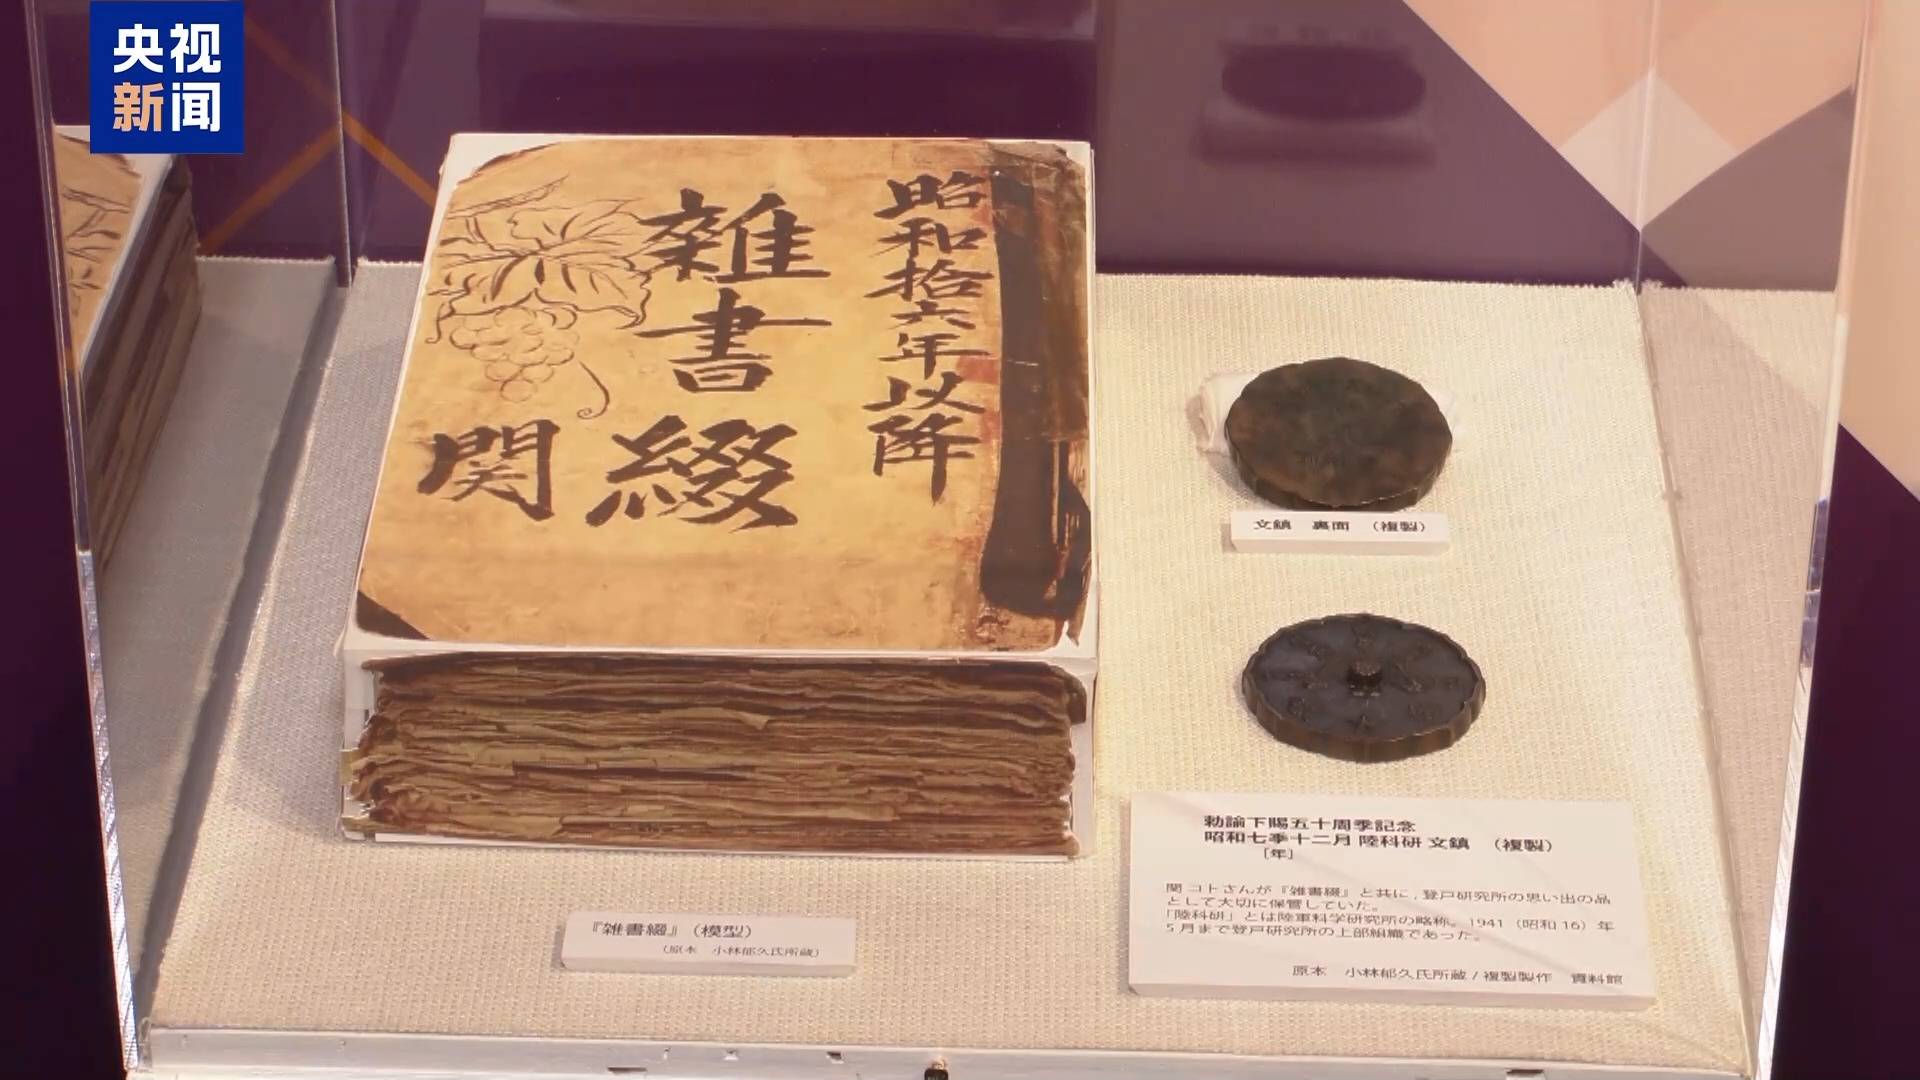 央视
新闻
昭和拾六年以降
雜書綴
関
文鎮 裏面 （複製）
勅諭下賜五十周季記念
昭和七季十二月 陸科研 文鎮 （複製）
［年］
関 コトさんが『雑書綴』と共に，登戸研究所の思い出の品
として大切に保管していた。
「陸科研」とは陸軍科学研究所の略称。1941（昭和16）年
5月まで登戸研究所の上部組織であった。
原本 小林郁久氏所蔵 / 複製製作 資料館
『雑書綴』（模型）
（原本 小林郁久氏所蔵）